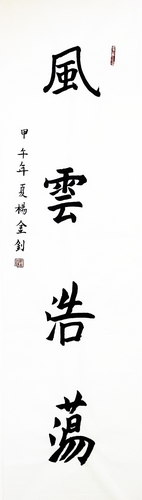 風雲浩蕩
甲午年夏楊金釗